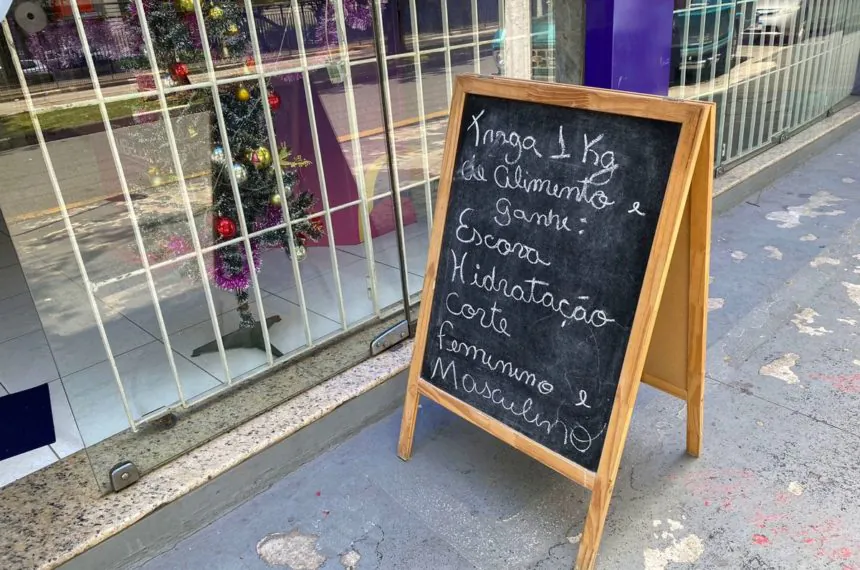 Traga 1 Kg
de Alimento e
Ganhe:
Escova
Hidratação
Corte
Feminino e
Masculino